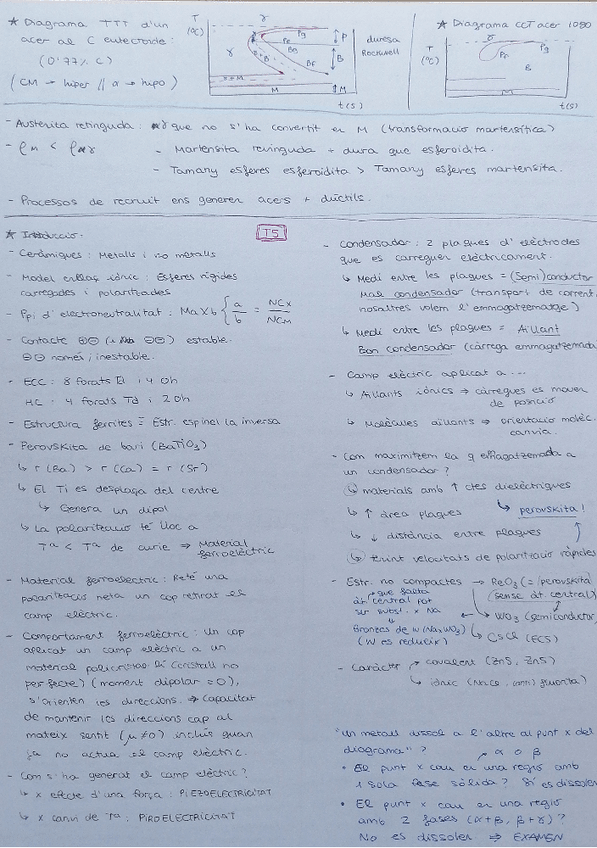 ★ Diagrama TTT d'un
acer al C eutectoide:
(0'77% C)
(CM → hiper // α → hipo)
T
(ºC)
γ
Pg
Pe
γ
Bg
B
Bf
M
t(s)
P
B
M
duresa
Rockwell
★ Diagrama CCT acer 1080
T
(ºC)
Pg
B
M
t(s)
- Austenita retinguda: γ que no s'ha convertit en M (transformació martensítica)
- ρM < ργ
- Martensita revinguda + dura que esferoidita.
- Tamany esferes esferoidita > Tamany esferes martensita.
- Processos de recruit ens generen acers + dúctils.
T5
★ Introducció:
- Ceràmiques: Metalls i no metalls
- Model enllaç iònic: Esferes rígides
carregades i polaritzades
- Ppi d'electroneutralitat: MaXb { a/b = NCx/NCM
- Contacte ⊕⊖ estable.
⊖⊖ només, inestable.
- ECC: 8 forats Td i 4 Oh
HC: 4 forats Td i 2 Oh
- Estructura ferrites = Estr. espinel·la inversa
- Perovskita de bari (BaTiO3)
↳ r(Ba) > r(Ca) = r(Sr)
↳ El Ti es desplaça del centre
↳ Genera un dipol
↳ La polarització té lloc a
Tª < Tª de curie ⇒ Material
ferroelèctric
- Material ferroelèctric: Reté una
polarització neta un cop retirat el
camp elèctric.
- Comportament ferroelèctric: Un cop
aplicat un camp elèctric a un
material policristal·lí (cristall no
perfecte) (moment dipolar = 0),
s'orienten les direccions. ⇒ Capacitat
de mantenir les direccions cap al
mateix sentit (μ≠0) inclús quan
ja no actua el camp elèctric.
- Com s'ha generat el camp elèctric?
↳ x efecte d'una força: PIEZOELECTRICITAT
↳ x canvi de Tª: PIROELECTRICITAT
- Condensador: 2 plaques d'elèctrodes
que es carreguen elèctricament.
↳ Medi entre les plaques = (Semi)conductor
Mal condensador (transport de corrent,
nosaltres volem l'emmagatzematge)
↳ Medi entre les plaques = Aïllant
Bon condensador (càrrega emmagatzemada
- Camp elèctric aplicat a...
↳ Aïllants iònics ⇒ càrregues es mouen
de posició
↳ Molècules aïllants ⇒ orientació molèc.
canvia.
- Com maximitzem la q emmagatzemada a
un condensador?
↳ materials amb ↑ ctes dielèctriques
↳ perovskita!
↳ ↑ àrea plaques
↳ ↓ distància entre plaques
↳ tenint velocitats de polarització ràpides
- Estr. no compactes → ReO3 (= perovskita
(sense àt. central)
que falta
àt. central pot
ser subst. x Na
WO3 (semiconductor)
Bronzes de W (NaxWO3)
(W es redueix)
↳ CsCl (ECS)
- Caràcter → covalent (ZnS, ZnS)
↳ iònic (NaCl, (anti)fluorita)
"un metall dissol a l'altre al punt x del
diagrama"?
α o β
• El punt x cau en una regió amb
1 sola fase sòlida? Sí es dissolen
• El punt x cau en una regió
amb 2 fases (α+β, β+γ)?
No es dissolen ⇒ EXAMEN